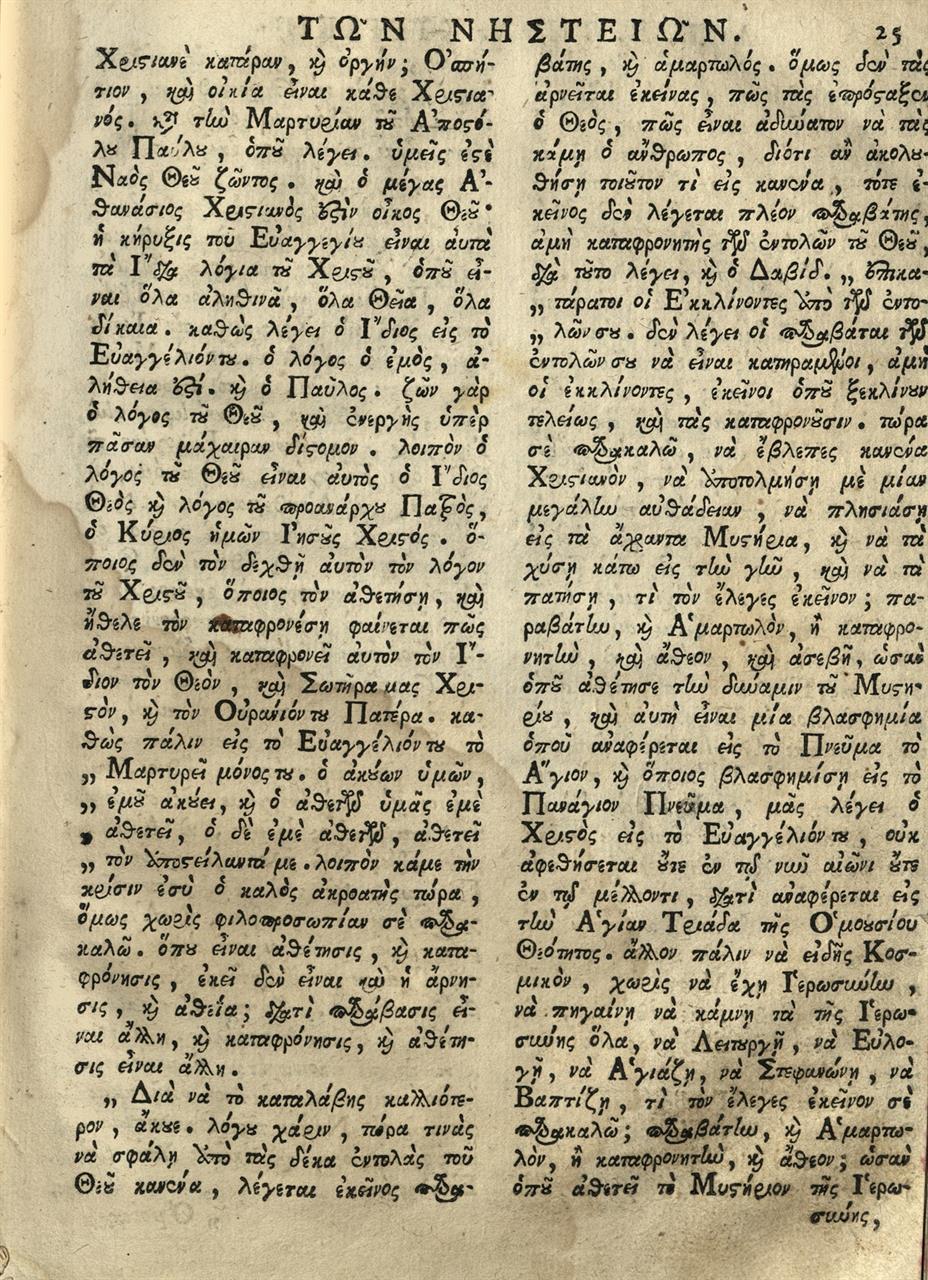 ΤΩ͂Ν ΝΗΣΤΕΙΩ͂Ν. 25
Χριστιανὲ κατάραν, καὶ ὀργήν; Ὀσπή-
τιον, καὶ οἰκία εἶναι κάθε Χριστια-
νός. κατὰ τὴν Μαρτυρίαν τοῦ Ἀποστό-
λου Παύλου, ὁποῦ λέγει. ὑμεῖς ἐστὲ
Ναὸς Θεοῦ ζῶντος. καὶ ὁ μέγας Ἀ-
θανάσιος Χριστιανὸς ἐστὶν οἶκος Θεοῦ·
ἡ κήρυξις τοῦ Εὐαγγεγίου εἶναι αὐτὰ
τὰ Ἴδια λόγια τοῦ Χριστοῦ, ὁποῦ εἶ-
ναι ὅλα ἀληθινὰ, ὅλα Θεῖα, ὅλα
δίκαια. καθὼς λέγει ὁ Ἴδιος εἰς τὸ
Εὐαγγέλιόντου. ὁ λόγος ὁ ἐμὸς, ἀ-
λήθεια ἐστί. καὶ ὁ Παῦλος. ζῶν γὰρ
ὁ λόγος τοῦ Θεοῦ, καὶ ἐνεργὴς ὑπὲρ
πᾶσαν μάχαιραν δίστομον. λοιπὸν ὁ
λόγος τοῦ Θεοῦ εἶναι αὐτὸς ὁ Ἴδιος
Θεὸς καὶ λόγος τοῦ προανάρχου Πατρὸς,
ὁ Κύριος ἡμῶν Ἰησοῦς Χριστός. ὅ-
ποιος δὲν τὸν δεχθῇ αὐτὸν τὸν λόγον
τοῦ Χριστοῦ, ὅποιος τὸν ἀθετήσῃ, καὶ
ἤθελε τὸν καταφρονέσῃ φαίνεται πῶς
ἀθετεῖ, καὶ καταφρονεῖ αὐτὸν τὸν Ἴ-
διον τὸν Θεὸν, καὶ Σωτῆρα μας Χρι-
στὸν, καὶ τὸν Οὐράνιόντου Πατέρα. κα-
θὼς πάλιν εἰς τὸ Εὐαγγέλιόντου τὸ
„ Μαρτυρεῖ μόνοςτου. ὁ ἀκούων ὑμῶν,
„ ἐμοῦ ἀκούει, καὶ ὁ ἀθετῶν ὑμᾶς ἐμὲ
„ ἀθετεῖ, ὁ δὲ ἐμὲ ἀθετῶν, ἀθετεῖ
„ τὸν ἀποστείλαντά με. λοιπὸν κάμε τὴν
κρίσιν ἐσὺ ὁ καλὸς ἀκροατὴς τώρα,
ὅμως χωρὶς φιλοπροσωπίαν σὲ παρα-
καλῶ. ὅπου εἶναι ἀθέτησις, καὶ κατα-
φρόνησις, ἐκεῖ δὲν εἶναι καὶ ἡ ἄρνη-
σις, καὶ ἀθεΐα; διατὶ παράβασις εἶ-
ναι ἄλλη, καὶ καταφρόνησις, καὶ ἀθέτη-
σις εἶναι ἄλλη.
„ Διὰ νὰ τὸ καταλάβῃς καλλιότε-
ρον, ἄκουε. λόγου χάριν, τώρα τινὰς
νὰ σφάλῃ ἀπὸ τὰς δέκα ἐντολὰς τοῦ
Θεοῦ κανένα, λέγεται ἐκεῖνος παρα-
βάτης, καὶ ἁμαρτωλός. ὅμως δὲν τὰς
ἀρνεῖται ἐκείνας, πῶς τὰς ἐπρόσταξεν
ὁ Θεὸς, πῶς εἶναι ἀδύνατον νὰ τὰς
κάμῃ ὁ ἄνθρωπος, διότι ἂν ἀκολου-
θήσῃ τοιοῦτον τὶ εἰς κανένα, τότε ἐ-
κεῖνος δὲν λέγεται πλέον παραβάτης,
ἀμὴ καταφρονητὴς τῶν ἐντολῶν τοῦ Θεοῦ,
διὰ τοῦτο λέγει, καὶ ὁ Δαβίδ. „ ἐπικα-
„ τάρατοι οἱ Ἐκκλίνοντες ἀπὸ τῶν ἐντο-
„ λῶνσου. δὲν λέγει οἱ παραβάται τῶν
ἐντολῶνσου νὰ εἶναι κατηραμένοι, ἀμὴ
οἱ ἐκκλίνοντες, ἐκεῖνοι ὁποῦ ξεκλίνουν
τελείως, καὶ τὰς καταφρονοῦσιν. τώρα
σὲ παρακαλῶ, νὰ ἔβλεπες κανένα
Χριστιανὸν, νὰ ἀποτολμήσῃ μὲ μίαν
μεγάλην αὐθάδειαν, νὰ πλησιάσῃ
εἰς τὰ ἄχραντα Μυστήρια, καὶ νὰ τὰ
χύσῃ κάτω εἰς τὴν γῆν, καὶ νὰ τὰ
πατήσῃ, τὶ τὸν ἔλεγες ἐκεῖνον; πα-
ραβάτην, καὶ Ἁμαρτωλὸν, ἢ καταφρο-
νητὴν, καὶ ἄθεον, καὶ ἀσεβῆ, ὡσὰν
ὁποῦ ἀθέτησε τὴν δύναμιν τοῦ Μυστη-
ρίου, καὶ αὐτὴ εἶναι μία βλασφημία
ὁποῦ ἀναφέρεται εἰς τὸ Πνεῦμα τὸ
Ἅγιον, καὶ ὅποιος βλασφημίσῃ εἰς τὸ
Πανάγιον Πνεῦμα, μᾶς λέγει ὁ
Χριστὸς εἰς τὸ Εὐαγγέλιόντου, οὐκ
ἀφεθήσεται οὔτε ἐν τῷ νῦν αἰῶνι οὔτε
ἐν τῷ μέλλοντι, διατὶ ἀναφέρεται εἰς
τὴν Ἁγίαν Τριάδα τῆς Ὁμουσίου
Θεότητος. ἄλλον πάλιν νὰ εἰδῇς Κοσ-
μικὸν, χωρὶς νὰ ἔχῃ Ἱερωσύνην,
νὰ πηγαίνῃ νὰ κάμνῃ τὰ τῆς Ἱερω-
σύνης ὅλα, νὰ Λειτυργῇ, νὰ Εὐλο-
γῇ, νὰ Ἁγιάζῃ, νὰ Στεφανώνῃ, νὰ
Βαπτίζῃ, τὶ τὸν ἔλεγες ἐκεῖνον σὲ
παρακαλῶ; παραβάτην, καὶ Ἁμαρτω-
λὸν, ἢ καταφρονητὴν, καὶ ἄθεον; ὡσὰν
ὁποῦ ἀθετεῖ τὸ Μυστήριον τῆς Ἱερω-
σύνης,